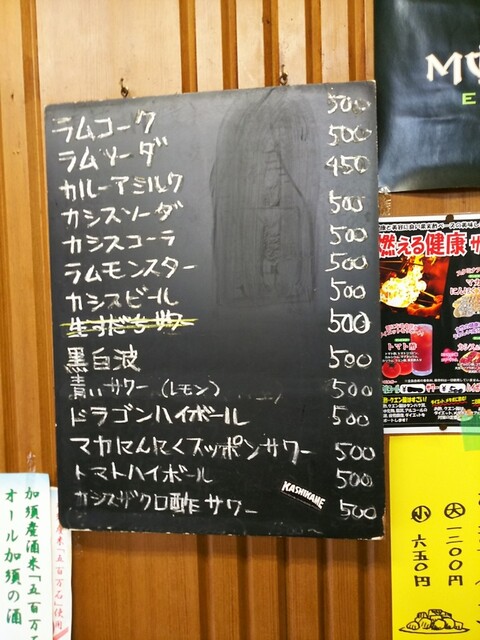 ラムコーク 500
ラムソーダ 500
カルーアミルク 450
カシスソーダ 500
カシスコーラ 500
ラムモンスター 500
カシスビール 500
生すだちサワー 500
黒白波 500
青いサワー（レモン） 500
ドラゴンハイボール 500
マカにんにくスッポンサワー 500
トマトハイボール 500
カシスザクロ酢サワー 500
KASHIKAME
燃える健康
トマト酢
大 一二〇〇円
小 六五〇円
加須産酒米「五百万石
オール加須の酒